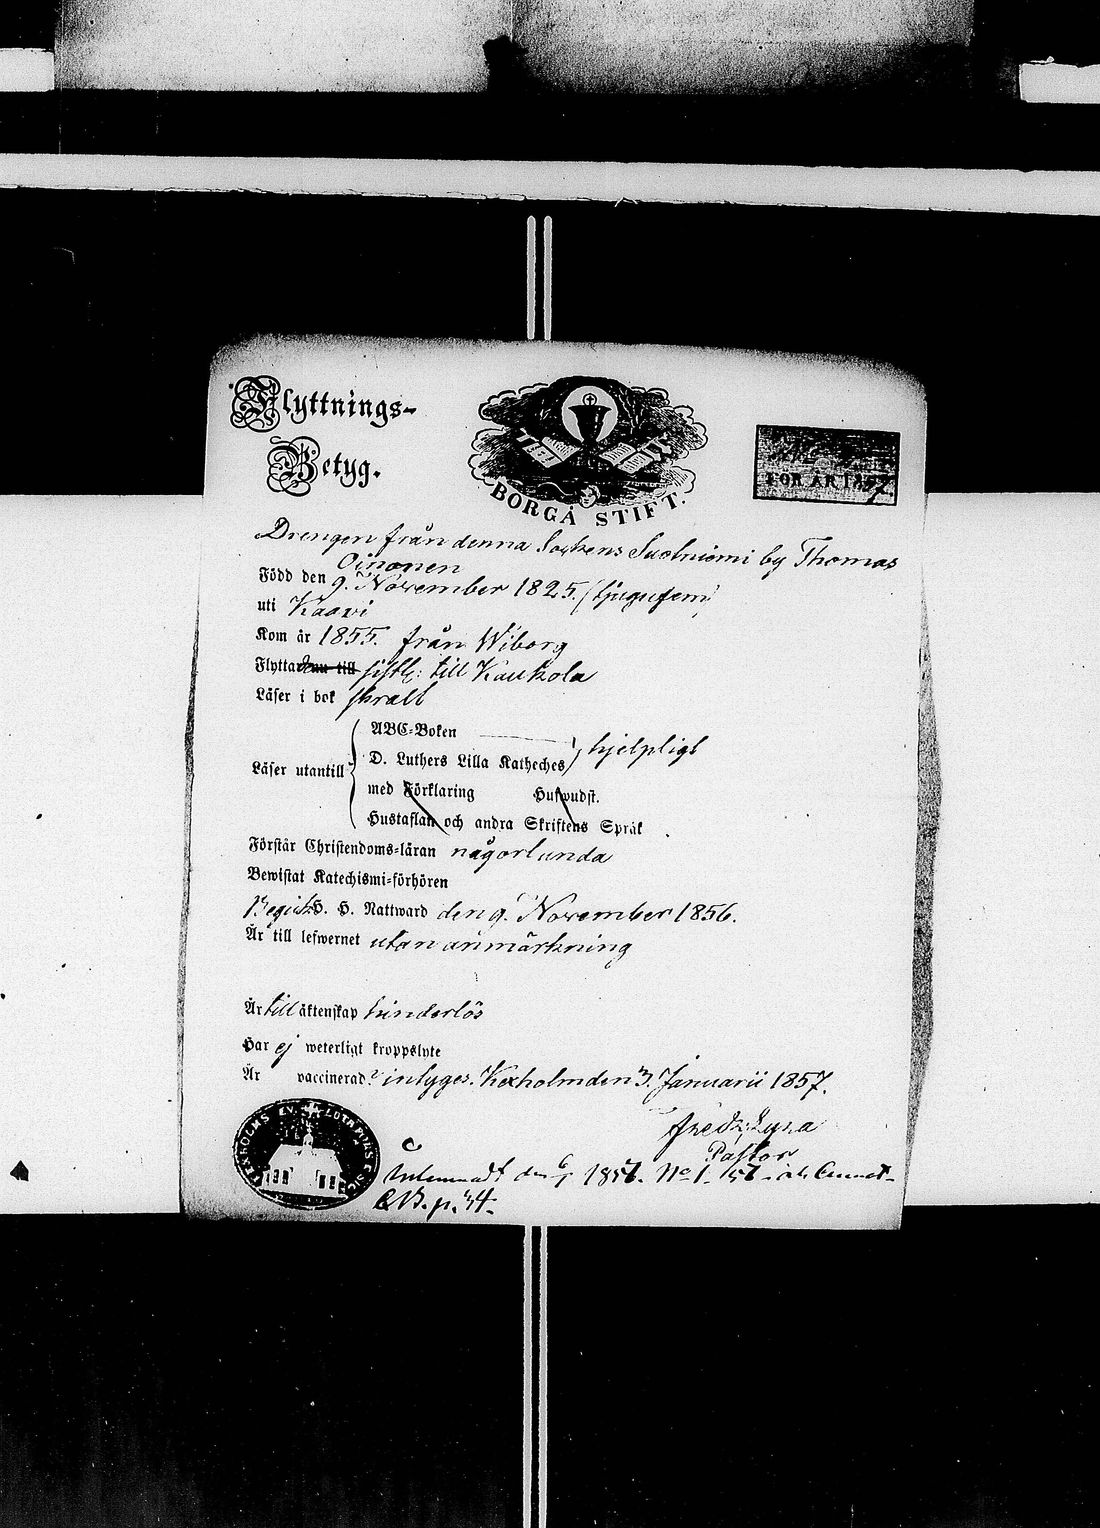 Flyttnings-
Betyg.
BORGÅ STIFT.
FÖR ÅR 1857.
Drengen från denna Sockens Suotniemi by Thomas
Oinonen
Född den 9. November 1825. (tjugufem)
uti Kaavi
Kom år 1855. från Wiborg
Flyttar denna till sistl: till Kaukola
Läser i bok svalt
ABC-Boken
D. Luthers Lilla Katheches } hjelpligt
Läser utantill
med Förklaring Hufwudst.
Hustaflan och andra Skriftens Språk
Förstår Christendoms-läran någorlunda
Bewistat Katechismi-förhören
Begått H. H. Nattward den 9. November 1856.
Är till lefwernet utan anmärkning
Är till äktenskap hinderlös
Har ej weterligt kroppslyte
Är vaccinerad? intyges. Kexholm den 3. Januarii 1857.
Fredr:
Pastor
Inlemnadt den 6/1 1857. No 1. /57
p. 34.